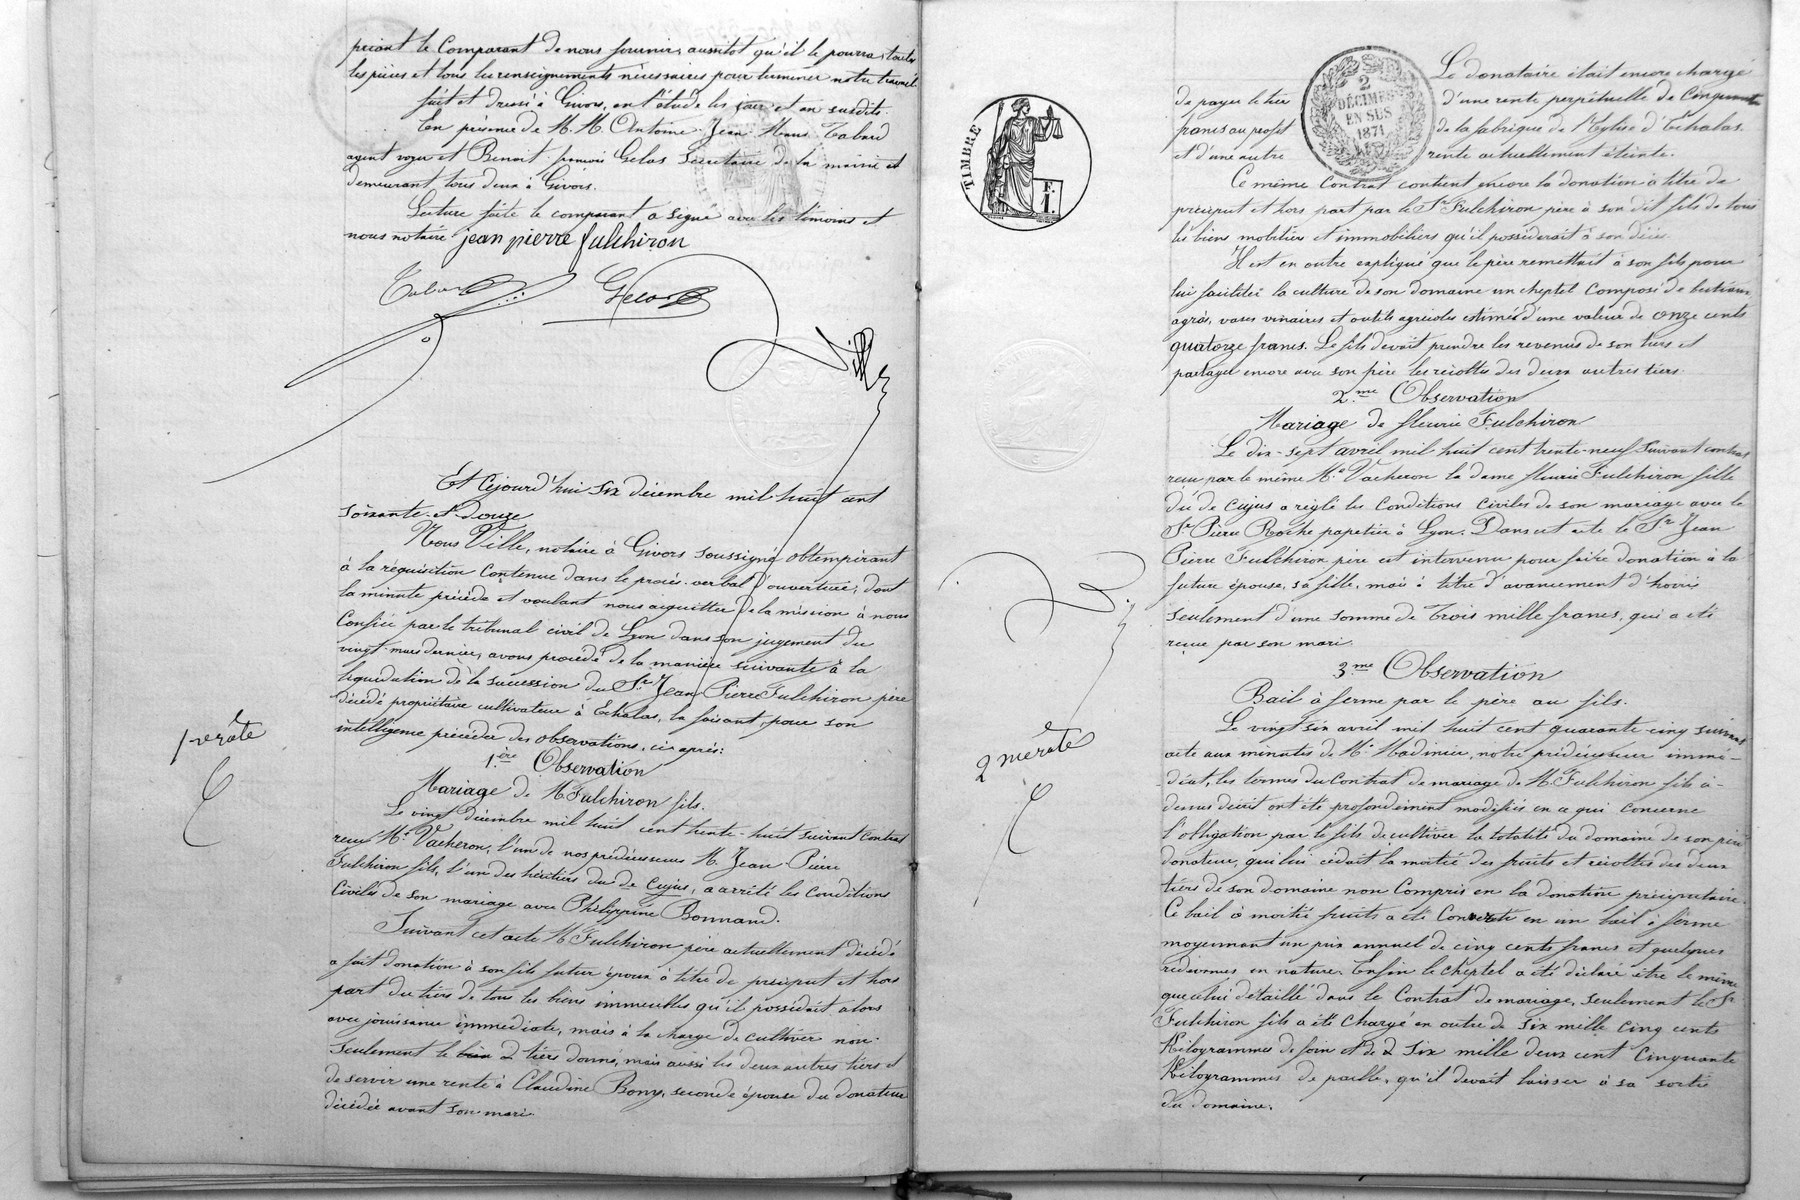 priant le Comparant de nous fournir, aussitot qu'il le pourra, toutes
les pièces et tous les renseignements nécessaires pour terminer notre travail.
fait et dressé à Givors, en l'étude les jour et an susdits.
En présence de M.M. Antoine Jean Marie Tabard
agent voyer et Benoit françois Gelas Secrétaire de la mairie et
demeurant tous deux à Givors.
Lecture faite le comparant a signé avec les témoins et
nous notaire jean pierre fulchiron
Tabard Gelas
Ville
Et Cejourd'hui six décembre mil huit cent
soixante-et-douze
Nous Ville, notaire à Givors soussigné obtempérant
à la réquisition Contenue dans le procès-verbal d'ouverture, dont
la minute précède et voulant nous aiquitter de la mission à nous
Confiée par le tribunal civil de Lyon dans son jugement du
vingt mars dernier, avons procédé de la manière suivante à la
liquidation de la succession du Sr. Jean Pierre Fulchiron père
décédé propriétaire cultivateur à Echalas, la faisant, pour son
intelligence précéder des observations, ci-après:
1.ère Observation
Mariage de M. Fulchiron fils.
1er rôle
Le vingt décembre mil huit cent trente-huit suivant contrat
reçu Me. Vacheron, l'un de nos prédécesseurs M. Jean Pierre
Fulchiron fils, l'un des héritiers du de Cujus, a arrêté les Conditions
Civiles de son mariage avec Philippine Bonnand.
Suivant cet acte M. Fulchiron père actuellement décédé
a fait donation à son fils futur époux à titre de préciput et hors
part du tiers de tous les biens immeubles qu'il possédait alors
avec jouissance immédiate, mais à la charge de cultiver non-
seulement le tiers donné, mais aussi les deux autres tiers et
de servir une rente à Claudine Bony, seconde épouse du donateur
décédée avant son mari.
TIMBRE
F.
1.
2
DÉCIMES
EN SUS
1871
Le donataire était encore chargé
de payer le tiers d'une rente perpétuelle de Cinquante
francs au profit de la fabrique de l'Eglise d'Echalas.
et d'une autre rente actuellement éteinte.
Ce même Contrat contient encore la donation à titre de
préciput et hors part par le Sr. Fulchiron père à son dit fils, de tous
les biens mobiliers et immobiliers qu'il posséderait à son décès.
Il est en outre expliqué que le père remettait à son fils pour
lui faciliter la culture de son domaine un cheptel Composé de bestiaux
agrès, vases vinaires et outils agricoles estimés d'une valeur de onze cents
quatorze francs. Le fils devait prendre les revenus de son tiers et
partager encore avec son père les récoltes des deux autres tiers.
2.me Observation
Mariage de fleurie Fulchiron
Le dix-sept avril mil huit cent trente-neuf suivant contrat
reçu par le même Me. Vacheron la dame fleurie Fulchiron fille
du de cujus a réglé les Conditions Civiles de son mariage avec le
Sr. Pierre Roche papetier à Lyon. Dans cet acte le Sr. Jean
Pierre Fulchiron père est intervenu pour faire donation à la
future épouse, sa fille, mais à titre d'avancement d'hoirie
seulement d'une somme de Trois mille francs, qui a été
reçue par son mari.
3.me Observation
Bail à ferme par le père au fils.
2me rôle
Le vingt six avril mil huit cent quarante-cinq suivant
acte aux minutes de Me. Madinier, notre prédécesseur immé-
diat, les termes du Contrat de mariage de M. Fulchiron fils ci-
dessus décrit ont été profondément modifiés en ce qui Concerne
l'obligation par le fils de cultiver la totalité du domaine de son père
donateur, qui lui cédait la moitié des fruits et récoltes des deux
tiers de son domaine non Compris en la donation préciputaire.
Ce bail à moitié fruits a été Converti en un bail à ferme
moyennant un prix annuel de cinq cents francs et quelques
redevances en nature. Enfin le cheptel a été déclaré être le même
que celui détaillé dans le Contrat de mariage, seulement le Sr.
Fulchiron fils a été Chargé en outre de six mille cinq cents
Kilogrammes de foin et de six mille deux cent cinquante
Kilogrammes de paille, qu'il devait laisser à sa sortie
du domaine.